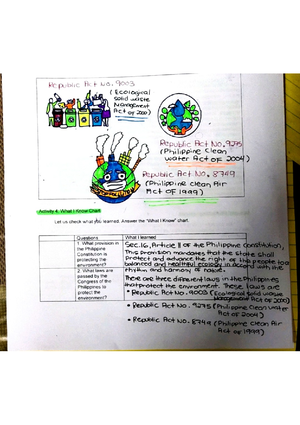 Republic Act No. 9003
(Ecological
solid waste
Management
Act of 2000)
Republic Act No. 9275
(Philippine Clean
water Act of 2004)
Republic Act No. 8749
(Philippine Clean Air
Act of 1999)
Activity 4: What I Know Chart
Let us check what you learned. Answer the "What I Know" chart.
Questions
What I learned
1. What provision in
the Philippine
Constitution is
protecting the
environment?
Sec.16, Article II of the Philippine Constitution,
This provision mandates that the state shall
protect and advance the right of the people to a
balanced and healthful ecology in accord with the
rhythm and harmony of nature.
2. What laws are
passed by the
Congress of the
Philippines to
protect the
environment?
There are three different laws in the Philippines
that protect the environment. These laws are
• Republic Act No. 9003 (Ecological solid waste
Management Act of 2000)
• Republic Act No. 9275 (Philippine Clean water
Act of 2004)
• Republic Act No. 8749 (Philippine Clean Air
Act of 1999)